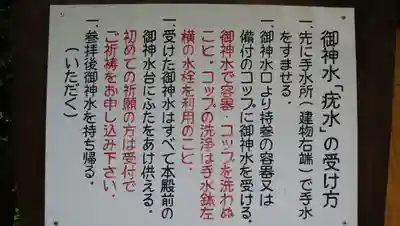 御神水「疣水」の受け方
一.先に手水所(建物右端)で手水
をすませる.
一.御神水口より持参の容器又は
備付のコップに御神水を受ける.
御神水で容器・コップを洗わぬ
こと。コップの洗浄は手水鉢左
横の水栓を利用のこと.
一.受けた御神水はすべて本殿前の
御神水台にふたをあけ供える.
初めての祈願の方は受付で
ご祈祷をお申し込み下さい.
一.参拝後御神水を持ち帰る.
(いただく)